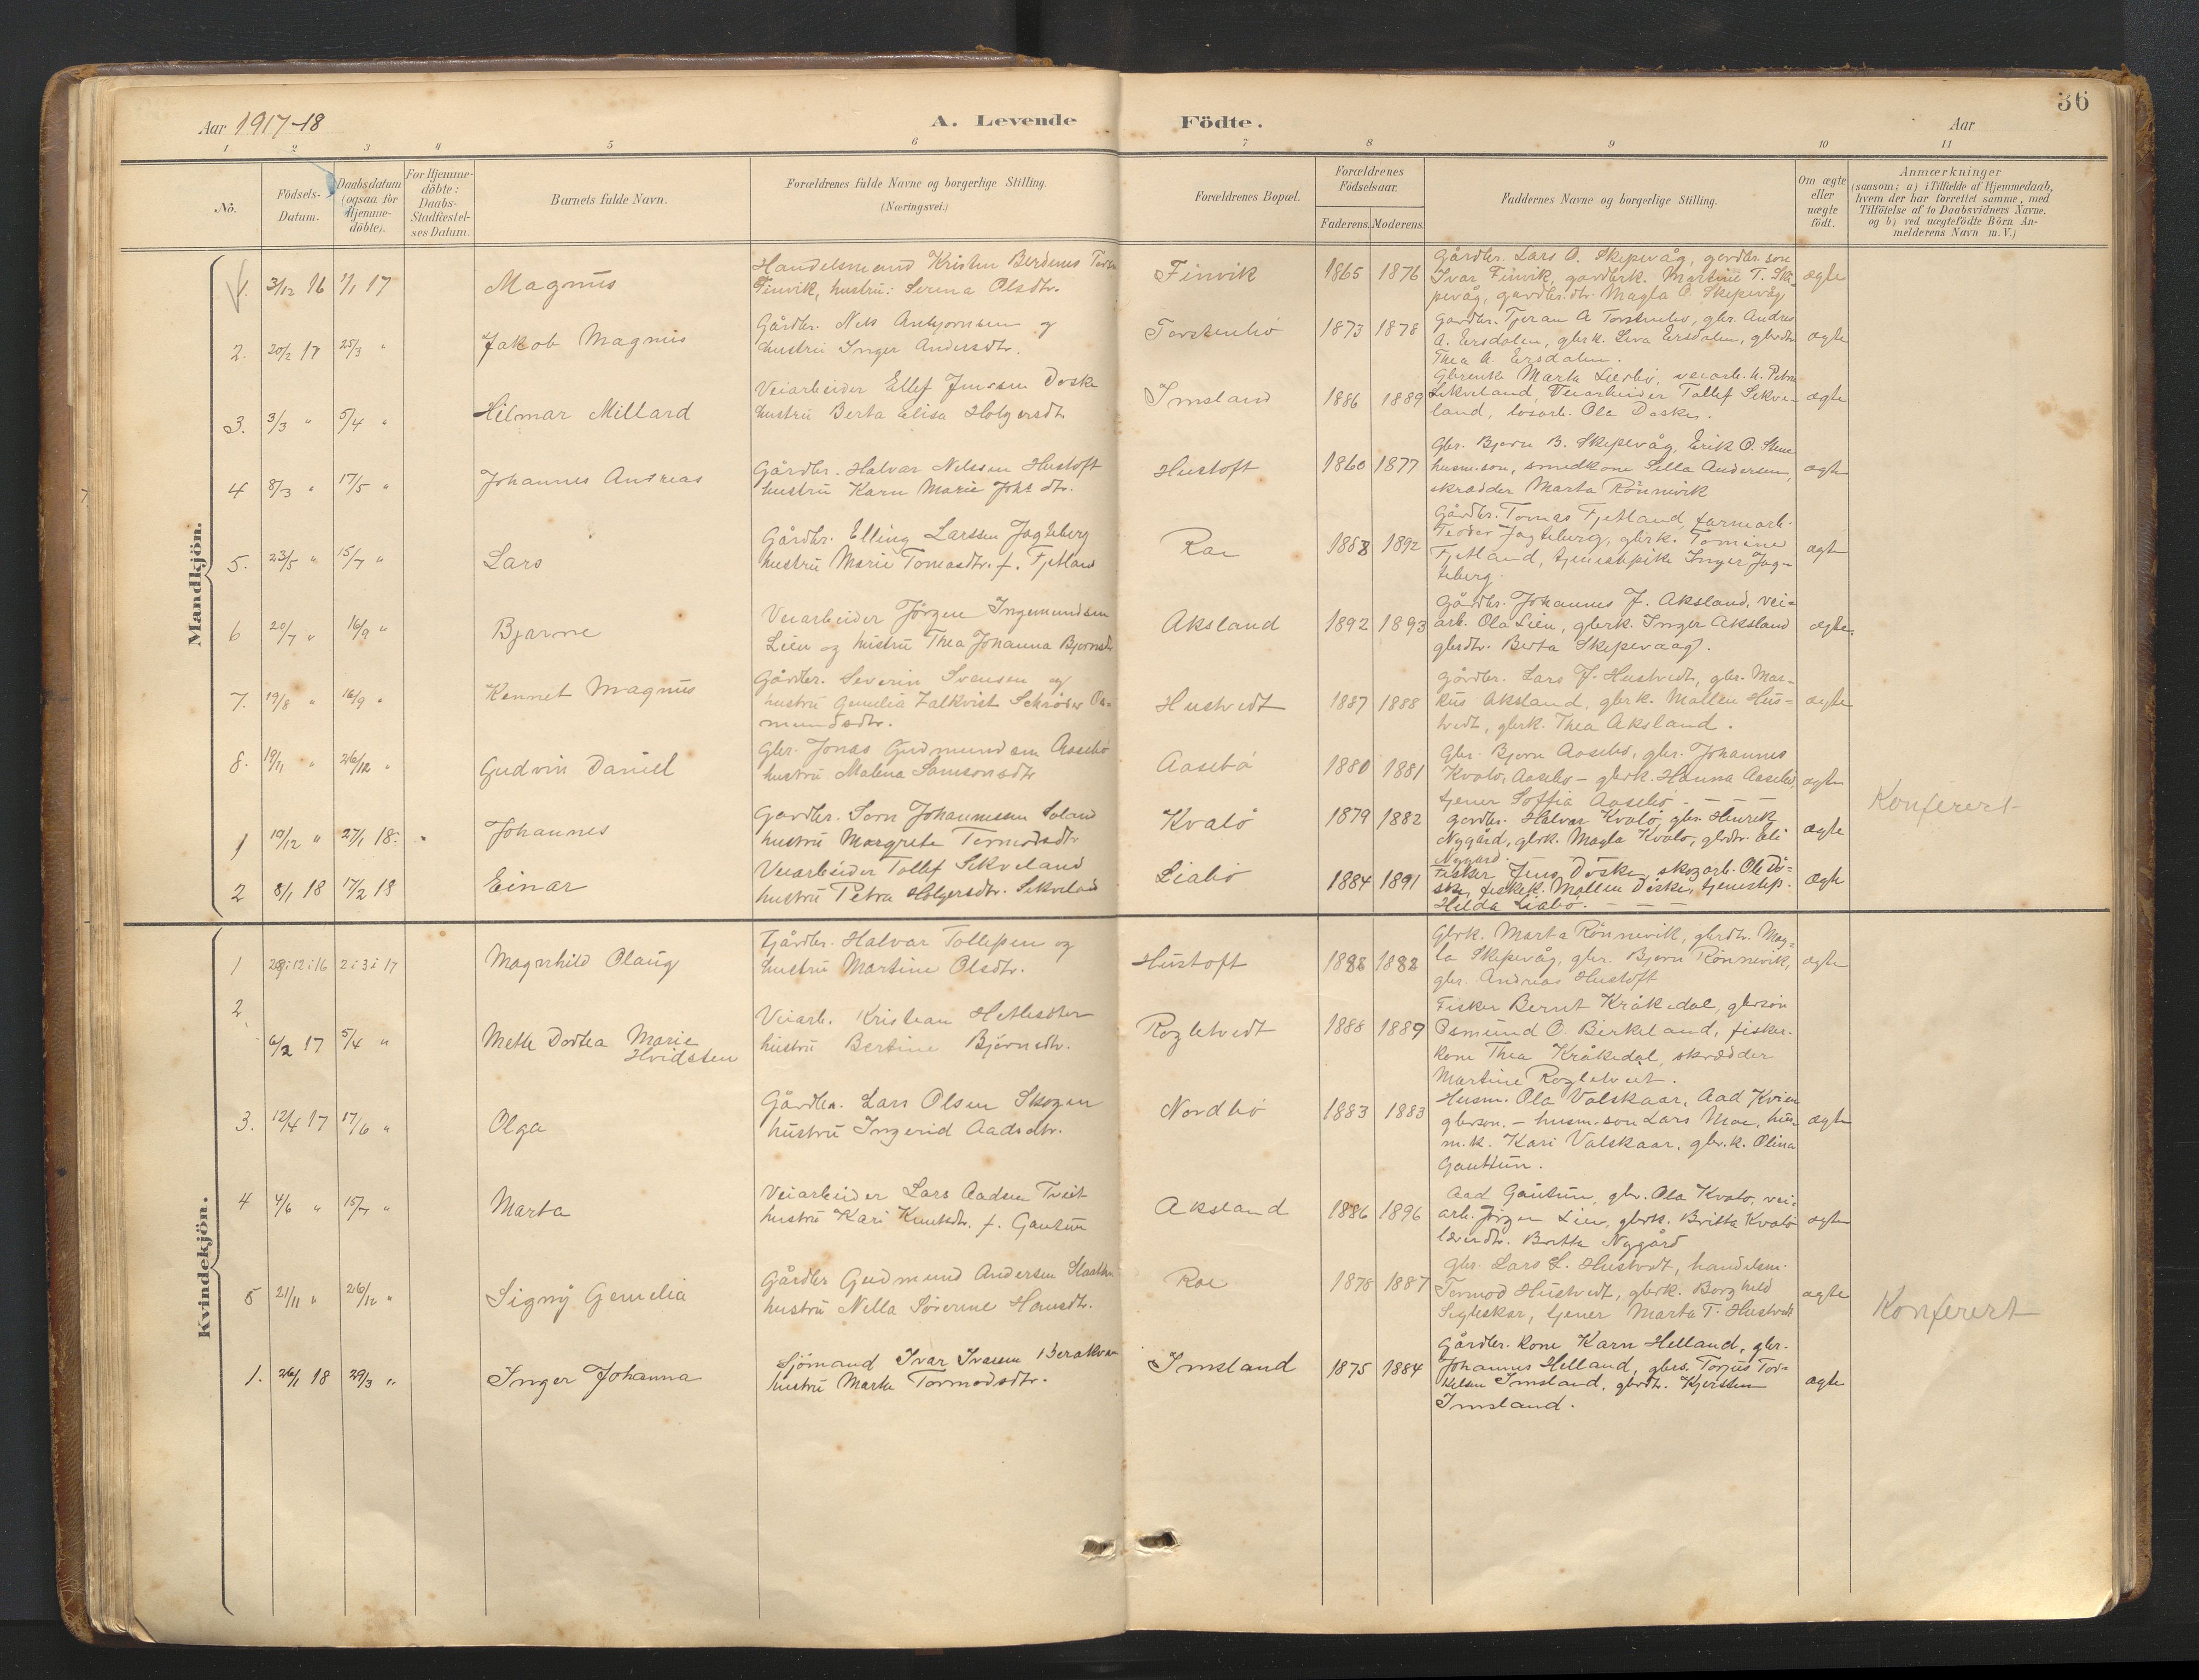 36
Aar 1917-18
A. Levende Födte.
Aar
1 2 3 4 5 6 7 8 9 10 11
No.
Födsels-
Datum.
Daabsdatum
(ogsaa for
Hjemme-
döbte).
For Hjemme-
döbte:
Daabs-
Stadfæstel-
ses Datum.
Barnets fulde Navn.
Forældrenes fulde Navne og borgerlige Stilling.
(Næringsvei.)
Forældrenes Bopæl.
Forældrenes
Födselsaar.
Faderens. Moderens.
Faddernes Navne og borgerlige Stilling.
Om ægte
eller
uægte
födt.
Anmærkninger
(saasom: a) i Tilfælde af Hjemmedaab,
hvem der har forrettet samme, med
Tilföielse af to Daabsvidners Navne.
og b) ved uægtefödte Börn An-
melderens Navn m. V.)
Mandkjön.
1. 3/12 16 1/1 17 Magnus
Handelsmand Kristen
Finvik, hustru: Serina Olsdtr.
Finvik 1865 1876
Gårdbr. Lars O. Skipevåg, gardbr. son
Ivar Finvik, gardbrk. Martine T. Ski-
pevåg, gardbr.dtr. Magla O. Skipevåg
ægte
2. 20/2 17 25/3 " Jakob Magnus
Gårdbr. Nels Anbjornsen og
hustru Inger Andersdtr.
Torstenbö 1873 1878
Gardbr. Tjeran A Torstenbö, gbr. Andres
A. Ersdalen, gbrk. Siva Ersdalen, gbrdtr
Thea A. Ersdalen.
ægte
3. 3/3 " 5/4 " Hilmar Millard
Veiarbeider Ellef Jensen Døske
hustru Berta Elisa Holgersdtr
Imsland 1886 1889
Marta Liarbö, veiarb. k. Petra
Sekveland, Veiarbeider Tollef Sekve-
land, løsarb. Ole Døske.
ægte
4 8/3 " 17/5 " Johannes Andreas
Gårdbr. Halvar Nelssen Hustoft
hustru Karn Marie Johs dtr.
Hustoft 1860 1877
Gbr. Bjørn B. Skipevåg, Erik O.
husm. son, smedkone Sella Andersen,
skrædder Marta Rönnevik
ægte
5. 23/5 " 15/7 " Lars
Gårdbr. Elling Larssen Jagteberg
hustru Marie Tomasdtr. f. Fjetland
Roe 1888 1892
Gårdbr. Tomas Fjetland, farmarb.
Teodor Jagteberg, gbrk. Tomine
Fjetland, tjenestepike Inger Jag-
teberg.
ægte
6 20/7 " 16/9 " Bjarne
Veiarbeider Jörgen Ingemundsen
Lien og hustru Thea Johanna Bjornsdtr
Aksland 1892 1893
Gårdbr. Johannes J. Aksland, vei-
arb. Ola Lien, gbrk. Inger Aksland
gbrdtr. Berta Skipevaag.
ægte.
7. 19/8 " 16/9 " Kennet Magnus
Gårdbr. Severin Svensen og
hustru Gemelia Falkvist Schrøder Os-
mundsdtr.
Hustvedt 1887 1888
Gårdbr. Lars J. Hustvedt, gbr. Mar-
kus Aksland, gbrk. Mallen Hus-
tvedt, gbrk. Thea Aksland.
ægte
8. 19/11 " 26/12 " Gudvin Daniel
Gbr. Jonas Gudmundsen Aasebö
hustru Malena Samsonsdtr
Aasebö 1880 1881
Gbr. Bjørn Aasebö, gbr. Johannes
Kvalö, Aasebö - gbrk. Hanna Aasebö,
tjener Soffia Aasebö - - -
ægte
Konferert
1 19/12 " 27/1 18. " Johannes
Gardbr. Sorn Johannesen Soland
hustru Margrete Tormodsdtr
Kvalö 1879 1882
Gardbr. Halvar Kvalö, gbr. Henrik
Nygård, gbrk. Magla Kvalö, gbrdtr. Eli
Nygård.
ægte
2 8/1 18 17/2 18 Einar
Veiarbeider Tollef Sekveland
hustru Petra Holgersdtr. Sekveland
Liabö 1884 1891
Fisker Jens Döske, skogarb. Ole Dö-
ske, fiskerk. Mallen Döske, tjenestep.
Hilda Liabö. - - -
ægte
Kvindekjön.
1 28:12:16 2:3:17 Magnhild Olaug
Gårdbr. Halvar Tollefsen og
hustru Martine Olsdtr.
Hustoft 1888 1882
Gbrk. Marta Rönnevik, gbrdtr. Mag-
la Skipevåg, gbr. Bjørn Rönnevik,
gbr. Andreas Hustoft
ægte
2. 6/2 17 5/4 " Mette Dortea Marie
Hvidsten
Veiarb. Kristian
hustru Bertine Björnsdtr.
Rogletvedt 1888 1889
Fisker Bernt Kråkedal, gbrsön
Osmund O. Birkeland, fisker-
kone Thea Kråkedal, skrædder
Martine Rogletveit.
3. 12/4 17 17/6 " Olga
Gårdbr. Lars Olsen Skogen
hustru Ingerid Aadsdtr.
Nordbö 1883 1883
Husm. Ola Valskaar, Aad
gbrson. - husm. son Lars Moe, hus-
m. k. Kari Valskaar, gbr. k. Olina
Gautun.
ægte
4 4/6 " 15/7 " Marta
Veiarbeider Lars Aadsen Tveit
hustru Kari Knutsdtr. f. Gautun
Aksland 1886 1896
Aad Gautun, gbr. Ola Kvalö, vei-
arb. Jörgen Lien, gbrk. Britta Kvalö
lærerdtr. Britta Nygård
ægte
5 21/11 " 26/12 " Signy Gemelia
Gårdbr Gudmund Andersen
hustru Nella Sörenne Hansdtr.
Roe 1878 1887
Gbr. Lars L. Hustvedt, handelsm.
Tormod Hustvedt, gbrk. Borghild
Sigleskar, tjener Marta T. Hustvedt
ægte
Konferert
1. 26/1 18 29/3 " Inger Johanna
Sjömand Ivar Ivarsen Berakvam
hustru Marte Tormodsdtr.
Imsland 1875 1884
Gårdbr. kone Karn Helland, gbr.
Johannes Helland, gbrs. Torjus Tor-
kelsen Imsland, gbrdtr. Kjersten
Imsland.
ægte